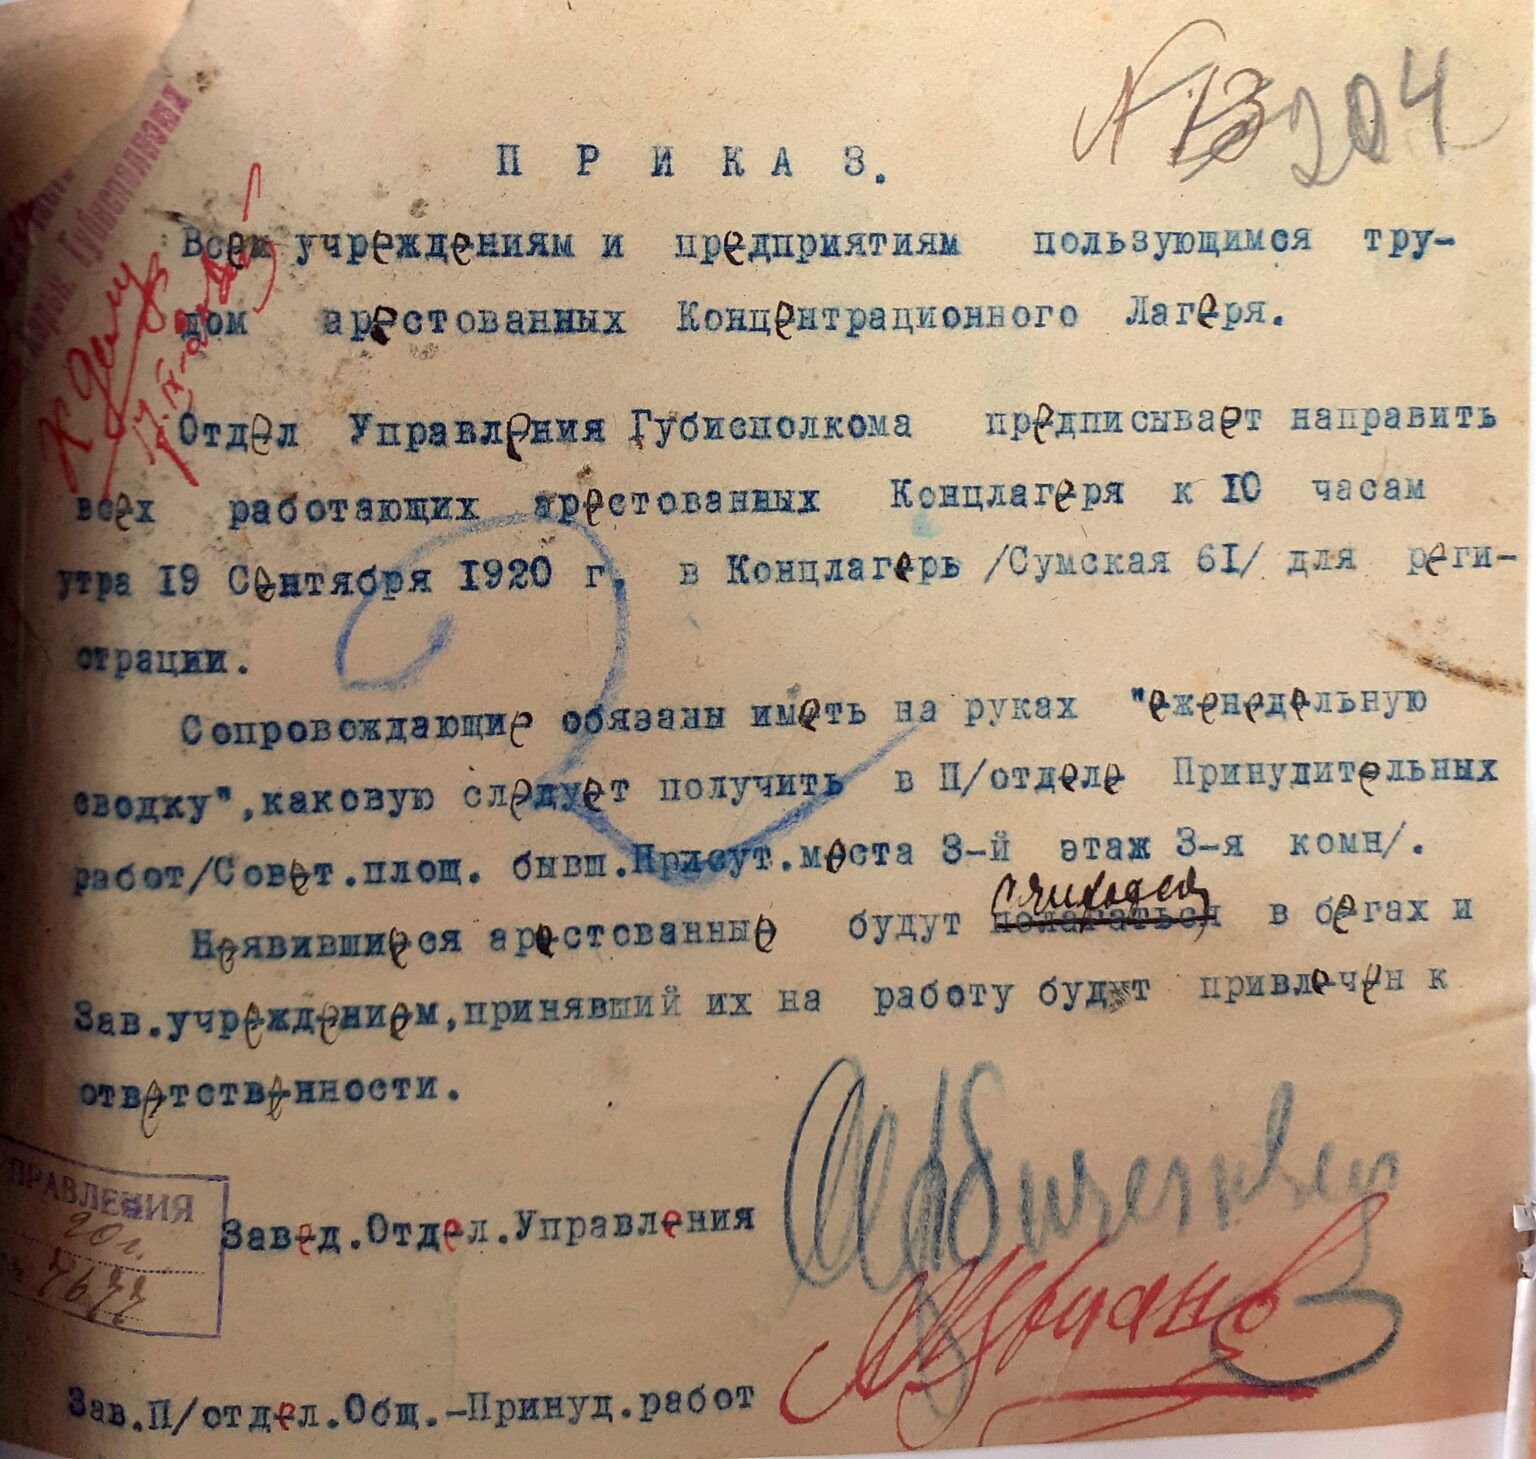 № 13 204
Губисполкома
К делу
П Р И К А З.
Всем учреждениям и предприятиям пользующимся тру-
дом арестованных Концентрационного Лагеря.
Отдел Управления Губисполкома предписывает направить
всех работающих арестованных Концлагеря к IO часам
утра I9 Сентября I920 г. в Концлагерь /Сумская 6I/ для реги-
страции.
Сопровождающие обязаны иметь на руках "еженедельную
сводку",каковую следует получить в П/отделе Принудительных
работ/Совет.площ. бывш.Присут.места 3-й этаж 3-я комн/.
считаться
Неявившиеся арестованные будут полагаться в бегах и
Зав.учреждением,принявший их на работу будут привлечен к
ответственности.
УПРАВЛЕНИЯ
20 г.
7677
Завед.Отдел.Управления
Зав.П/отдел.Общ.-Принуд.работ